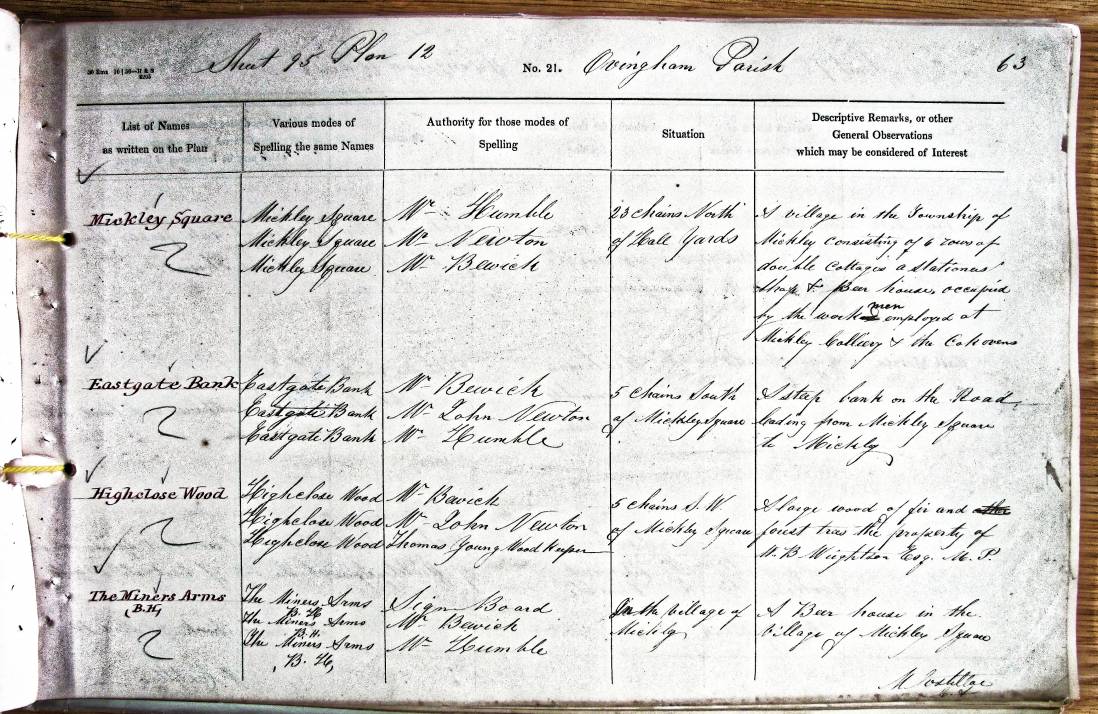 Sheet 95 Plan 12
No. 21.
Ovingham Parish
63
List of Names
as written on the Plan
Various modes of
Spelling the same Names
Authority for those modes of
Spelling
Situation
Descriptive Remarks, or other
General Observations
which may be considered of Interest
Mickley Square
Mickley Square
Mickley Square
Mickley Square
Mr Humble
Mr Newton
Mr Bewick
23 chains North
of Hall Yards
A village in the Township of
Mickley consisting of 6 rows of
double Cottages a Stationers
Shop & Beer house, occupied
by the work men employed at
Mickley Colliery & the Cokovens
Eastgate Bank
Eastgate Bank
Eastgate Bank
Eastgate Bank
Mr Bewick
Mr John Newton
Mr Humble
5 chains South
of Mickley Square
A steep bank on the Road
leading from Mickley Square
to Mickley
Highclose Wood
Highclose Wood
Highclose Wood
Highclose Wood
Mr Bewick
Mr John Newton
Thomas Young Wood Keeper
5 chains S.W.
of Mickley Square
A large wood of fir and other
forest trees the property of
W. B. Wrightson Esq. M. P.
The Miners Arms
B.H,
The Miners Arms
B. H
The Miners Arms
B. H.
The Miners Arms
B. H,
Sign Board
Mr Bewick
Mr Humble
In the Village of
Mickley
A Beer house in the
Village of Mickley Square